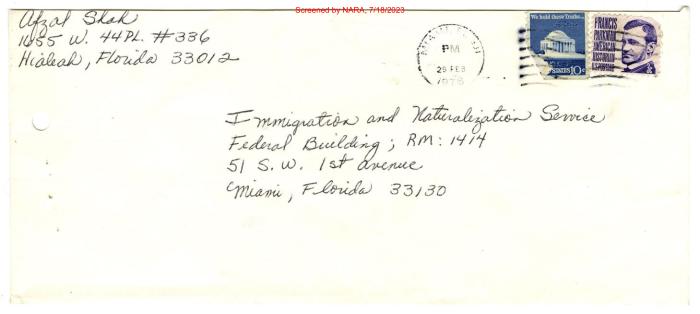 Screened by NARA, 7/18/2023
Afzal Shah
1655 W. 44PL. #336
Hialeah, Florida 33012
PM
25 FEB
1976
We hold these Truths...
10¢
FRANCIS
PARKMAN
AMERICAN
HISTORIAN
Immigration and Naturalization Service
Federal Building; RM: 1414
51 S.W. 1st avenue
Miami, Florida 33130